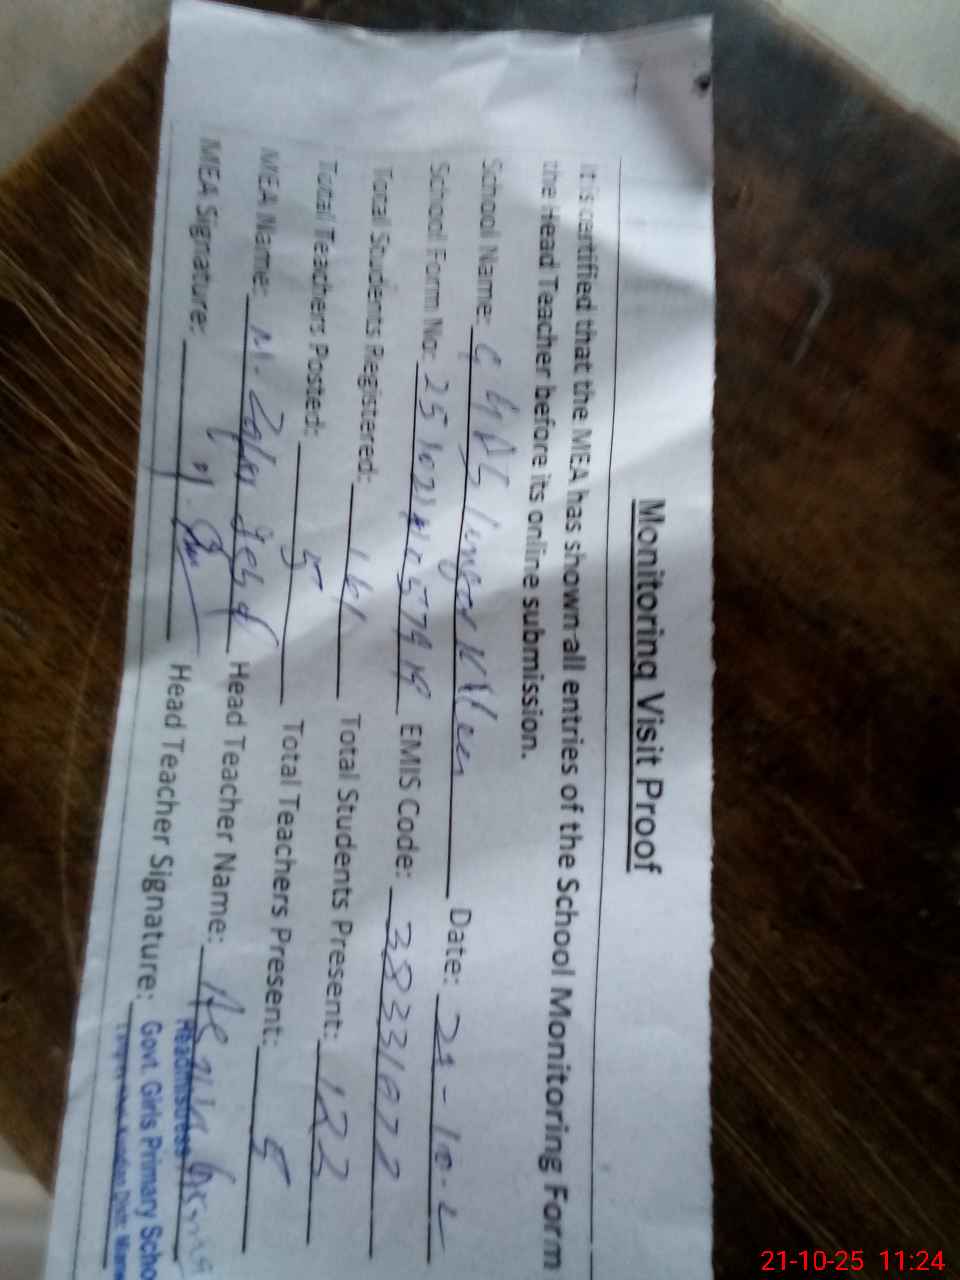 Monitoring Visit Proof
It is certified that the MEA has shown all entries of the School Monitoring Form
the Head Teacher before its online submission.
School Name: Date: 21-10-2
School Form No: EMIS Code: 38331072
Total Students Registered: 161 Total Students Present: 122
Total Teachers Posted: 5 Total Teachers Present: 5
MEA Name: M. Zafar Head Teacher Name:
MEA Signature: Head Teacher Signature:
Headmistress
Govt. Girls Primary Scho
21-10-25 11:24